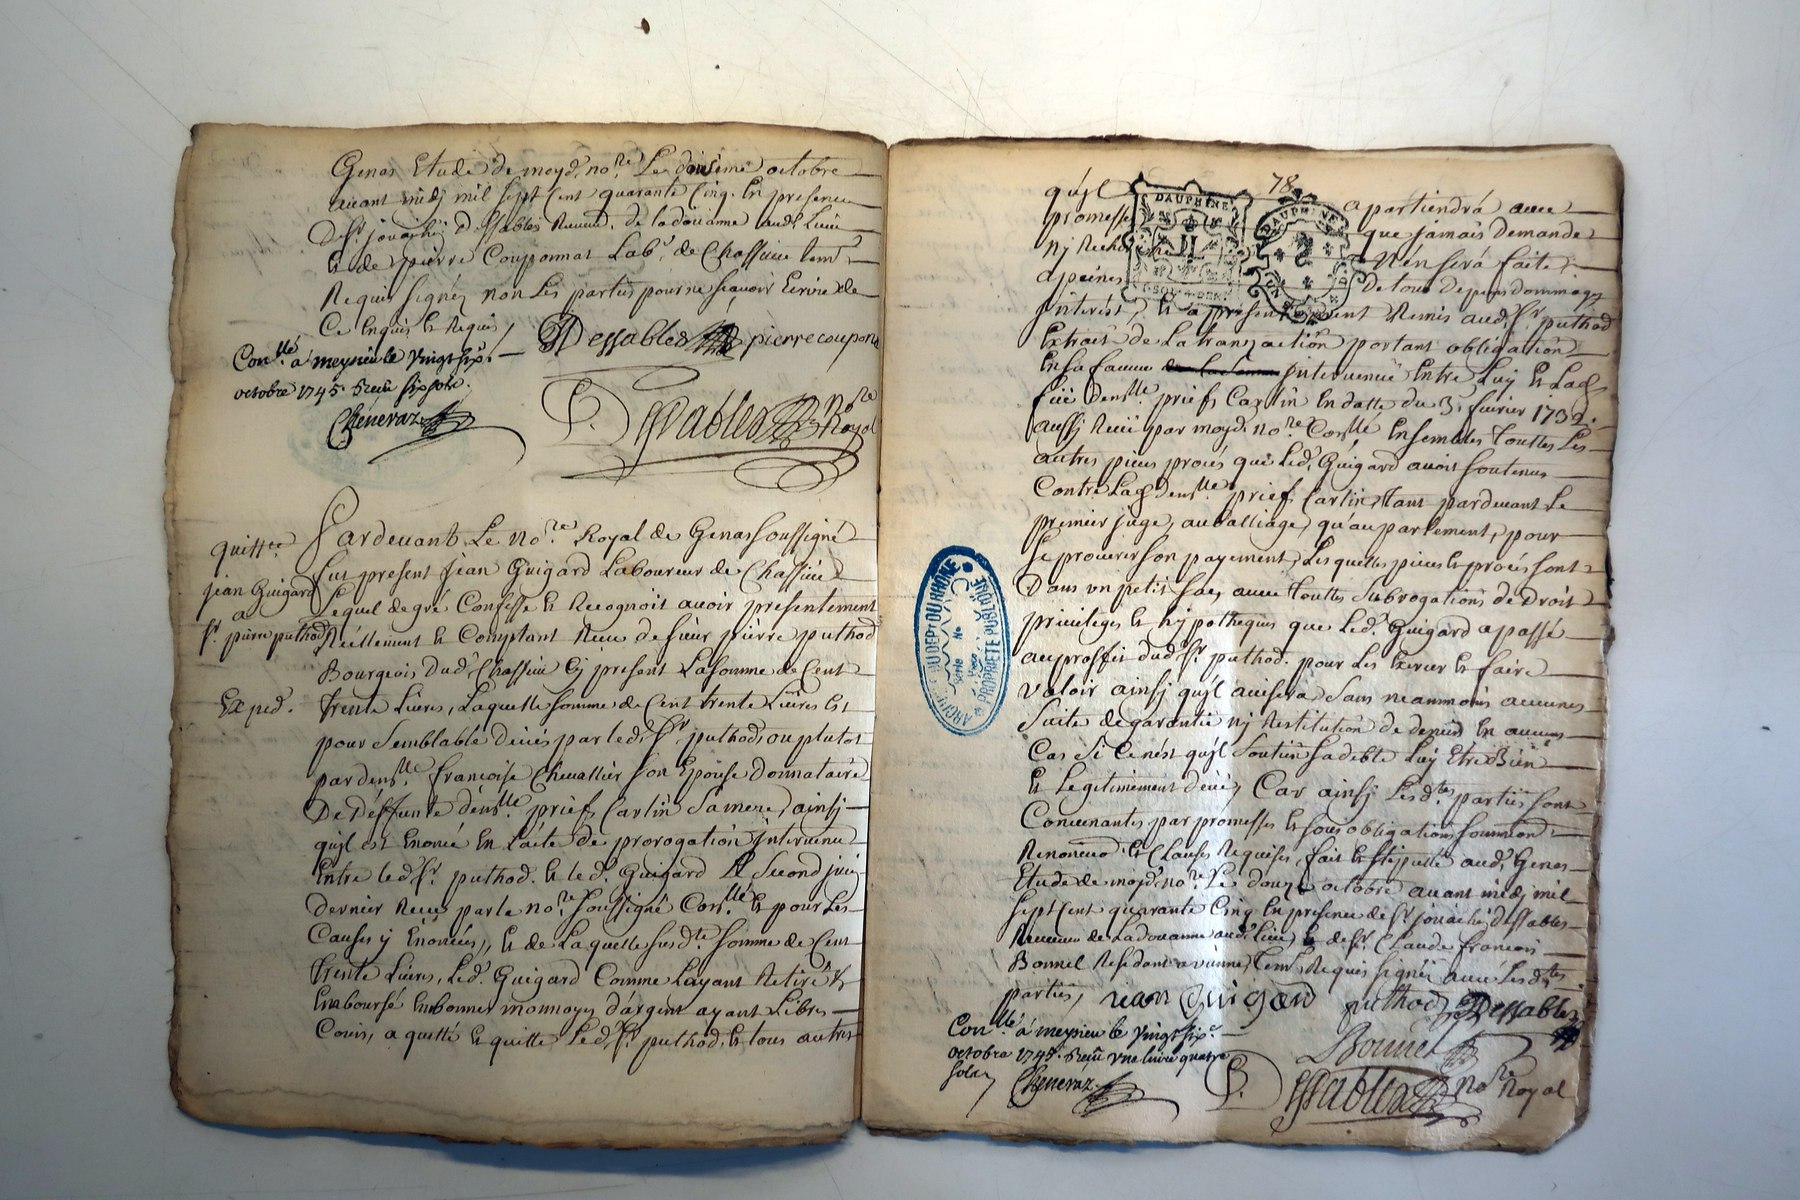 Genas Etude de moyd. no.re Le dousime octobre
avant midj mil sept Cent quarante Cinq. En presence
D. Sr. jouachin Dessables Receveur. de la douanne aud. Lieu
Et de pierre Couponnat Lab.r de Chassieu tem.
Requis signéz non Les parties pour ne sçavoir Ecrire de
Ce Enquis Et Requis /
Dessables pierre coupona
Con.llé a meysieu le vingt six.
octobre 1745. Reçu six sols.
Cheneraz
P. Dessables no.re Royal
quitt.ce
jean Guigard
a
Sr. pierre puthod
Exped.
Pardevant Le No.re Royal de Genas soussigné
fut present jean Guigard Laboureur de Chassieu
Lequel de gré Confesse Et Recognoit avoir presentement
Réellement Et Comptant Receu de sieur pierre puthod
Bourgeois dud. Chassieu Cy present La somme de Cent
trente Livres, Laquelle somme de Cent trente Livres Est
pour semblable deües par led. Sr. puthod, ou plutot
par dem.lle francoise Chevallier son Epouse donnataire
De Deffunte dem.lle prief Carlin sa mere, ainsj
qu'jl est Enoncé En L'acte de prorogation jntervenu
Entre led. Sr. puthod. Et led. Guigard le second juin
dernier Receu par le no.re soussigné Con.llé Et pour Les
Causes y Enoncées, Et de Laquelle susd.te somme de Cent
trente Livres, Led. Guigard Comme Layant Retiré &
Emboursé En bonnes monnoyes d'argent ayant Libres
Cours, a quitté Et quitte Led. Sr. puthod, Et tous autres
78
qu'jl apartiendrá avec
promesse que jamais demande
Nj Recherche N'en será faite
a peines de tous depens dommages
DAUPHINE
DAUPHINE
jnterest, Et a presentement Remis aud. Sr. puthod
Extrait de La transaction portant obligation
En sa faveur jntervenue Entre Luy Et Lad.
feüe dem.lle prief Carlin En datte du 3 fevrier 1732.
aussj Receu par moyd. no.re Con.llé Ensembles touttes Les
autres pieces procés que Led. Guigard avoit soutenus
Contre Lad. dem.lle prief Carlin, tant pardevant Le
premier juge, au balliage, qu'au parlement, pour
se procurer son payement, Lesquelles pieces Et procés sont
Dans un petit sac, avec touttes subrogations de Droit
privileges Et hypotheques que Led. Guigard a passé
au proffit dud. Sr. puthod. pour Les Exercer Et faire
valoir ainsj qu'jl avisera sans neanmoins aucunes
suite de garantie nj Restitution de deniers En aucun
Cas si Ce n'est qu'jl soutient sa debte Luy Etre Bien
Et Legitimement deüe, Car ainsj Les d.tes parties sont
Convenantes par promesses Et sous obligations soumiõns
Renonceõ. Et Clauses Requises, fait Et stipullé aud. Genas
Etude de moyd. no.re Le douze octobre avant midj mil
sept Cent quarante Cinq En presence de Sr. jouachin dessables
Receveur de La douanne aud. Lieu, Et de Sr. Claude francois
Bonnel Residant a vienne, tem. Requis signéz avec Lesd.tes
parties, jean Guigard puthod Dessables
Bonnel
Con.llé a meysieu le vingt six.
octobre 1745. Reçu une livre quatre
sols
Cheneraz
P. Dessables no.re Royal
ARCHIVES DU DEPT DU RHÔNE
PROPRIÉTÉ PUBLIQUE